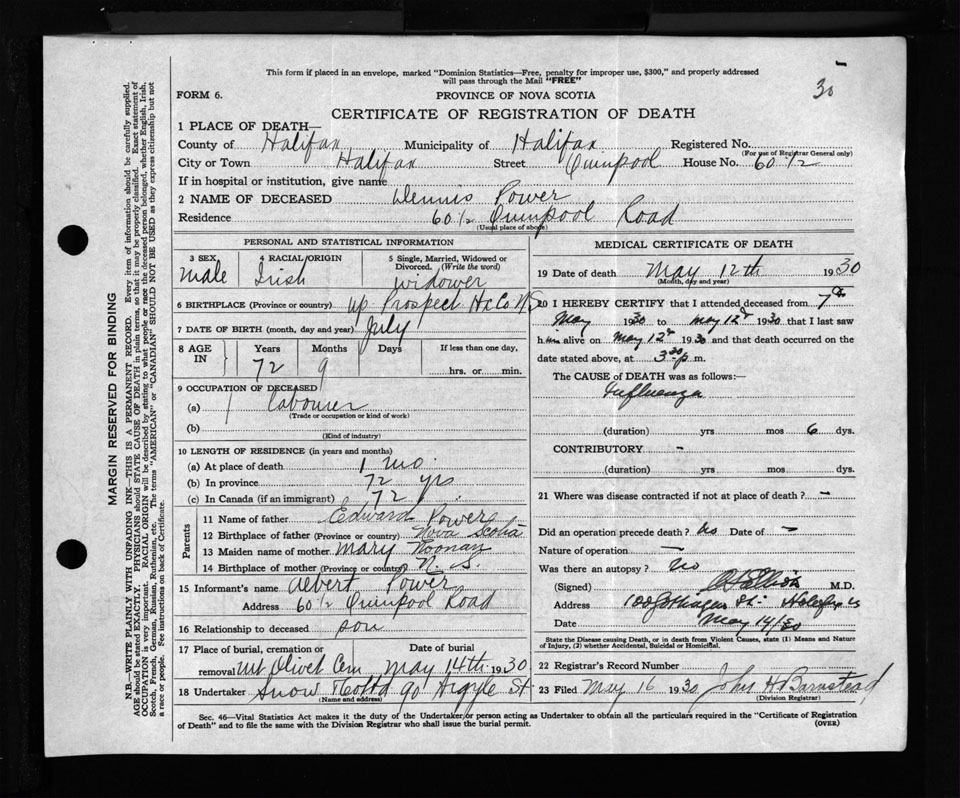 This form if placed in an envelope, marked "Dominion Statistics—Free, penalty for improper use, $300," and properly addressed
will pass through the Mail "FREE"
30
FORM 6.
PROVINCE OF NOVA SCOTIA
CERTIFICATE OF REGISTRATION OF DEATH
1 PLACE OF DEATH—
County of Halifax Municipality of Halifax Registered No.
(For use of Registrar General only)
City or Town Halifax Street Quinpool House No. 60 1/2
If in hospital or institution, give name
2 NAME OF DECEASED Dennis Power
Residence 60 1/2 Quinpool Road
(Usual place of above)
PERSONAL AND STATISTICAL INFORMATION
3 SEX male
4 RACIAL ORIGIN Irish
5 Single, Married, Widowed or Divorced. (Write the word) widower
6 BIRTHPLACE (Province or country) Up. Prospect Hx. Co. N.S
7 DATE OF BIRTH (month, day and year) July
8 AGE IN Years 72 Months 9 Days If less than one day, hrs. or min.
9 OCCUPATION OF DECEASED
(a) Labourer
(Trade or occupation or kind of work)
(b)
(Kind of industry)
10 LENGTH OF RESIDENCE (in years and months)
(a) At place of death 1 mo.
(b) In province 72 yrs
(c) In Canada (if an immigrant) 72
Parents
11 Name of father Edward Power
12 Birthplace of father (Province or country) Nova Scotia
13 Maiden name of mother Mary Noonan
14 Birthplace of mother (Province or country) N. S.
15 Informant's name Albert Power
Address 60 1/2 Quinpool Road
16 Relationship to deceased son
17 Place of burial, cremation or removal Mt Olivet Cem Date of burial May 14th 1930
18 Undertaker Snow 90 Argyle St
(Name and address)
MEDICAL CERTIFICATE OF DEATH
19 Date of death May 12th 1930
(Month, day and year)
20 I HEREBY CERTIFY that I attended deceased from 7th
May 1930 to May 12th 1930 that I last saw
him alive on May 12th 1930 and that death occurred on the
date stated above, at 3:30 p m.
The CAUSE of DEATH was as follows:—
Influenza
(duration) yrs mos 6 dys.
CONTRIBUTORY -
(duration) yrs mos dys.
21 Where was disease contracted if not at place of death? -
Did an operation precede death? No Date of -
Nature of operation —
Was there an autopsy? No
(Signed) M.D.
Address 100 Gottingen St. Halifax
Date May 14/30
State the Disease causing Death, or in death from Violent Causes, state (1) Means and Nature of Injury, (2) whether Accidental, Suicidal or Homicidal.
22 Registrar's Record Number
23 Filed May 16 1930 John H Barnstead
(Division Registrar)
Sec. 46—Vital Statistics Act makes it the duty of the Undertaker, or person acting as Undertaker to obtain all the particulars required in the "Certificate of Registration
of Death" and to file the same with the Division Registrar who shall issue the burial permit.
(OVER)
MARGIN RESERVED FOR BINDING
N.B.—WRITE PLAINLY WITH UNFADING INK—THIS IS A PERMANENT RECORD. Every item of information should be carefully supplied.
AGE should be stated EXACTLY. PHYSICIANS should STATE CAUSE OF DEATH in plain terms, so that it may be properly classified. Exact statement of
OCCUPATION is very important. RACIAL ORIGIN will be described by stating to what people or race the deceased person belonged, whether English, Irish,
Scotch, French, German, Russian, Ruthenian, etc. The terms "AMERICAN" or "CANADIAN" SHOULD NOT BE USED as they express citizenship but not
a race or people. See instructions on back of Certificate.